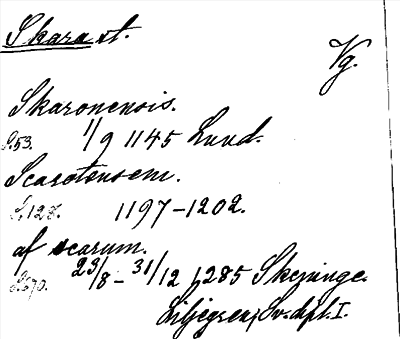 Skara st.
Vg.
Skaronensis.
S.53. 1/9 1145 Lund.
Scarotensem.
S.128. 1197-1202.
af scarum.
S.670. 23/8 - 31/12 1285 Skeninge.
Liljegren, Sv. dipl. I.